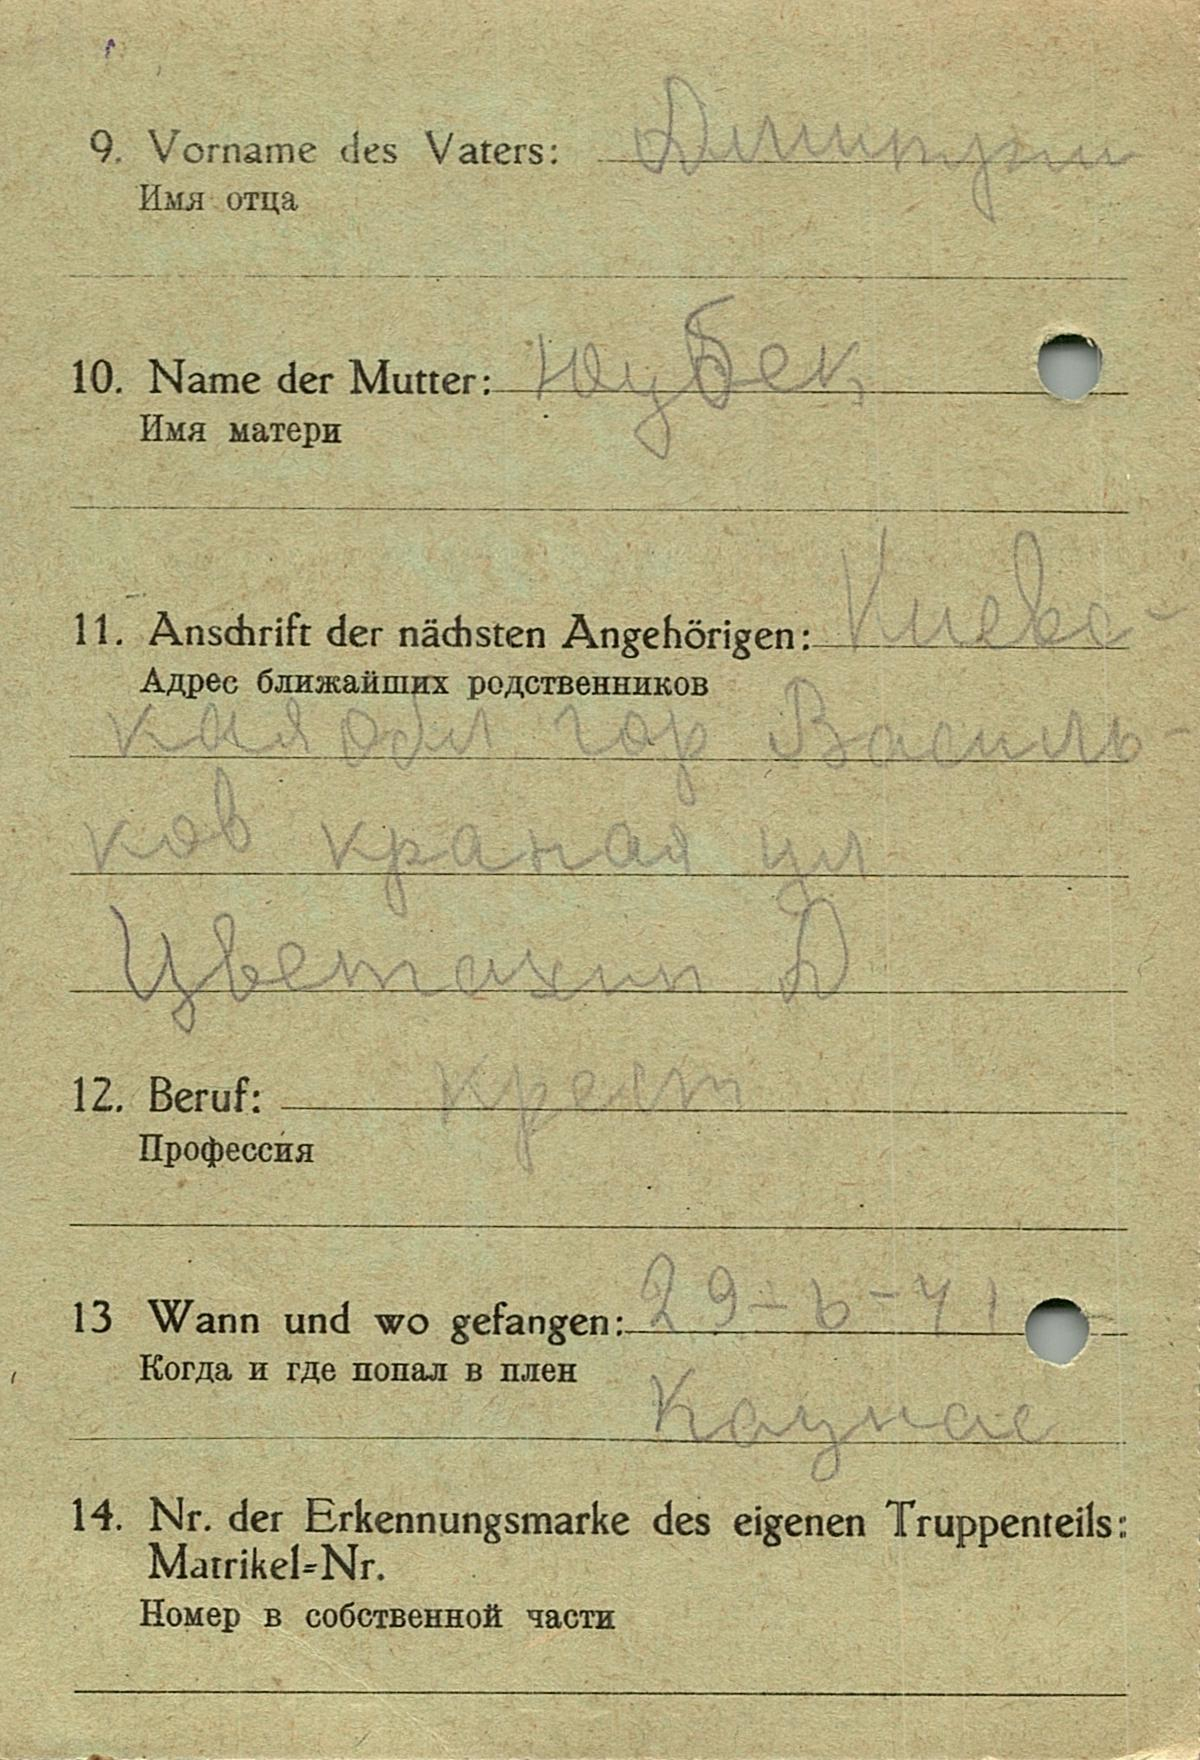 9. Vorname des Vaters: Дмитрии
Имя отца
10. Name der Mutter:
Имя матери
11. Anschrift der nächsten Angehörigen: Киевс-
Адрес ближайших родственников
кая обл гор Василь-
ков краная ул
Цветахин Д
12. Beruf: крест
Профессия
13 Wann und wo gefangen: 29-6-41
Когда и где попал в плен
Каунас
14. Nr. der Erkennungsmarke des eigenen Truppenteils:
Matrikel=Nr.
Номер в собственной части